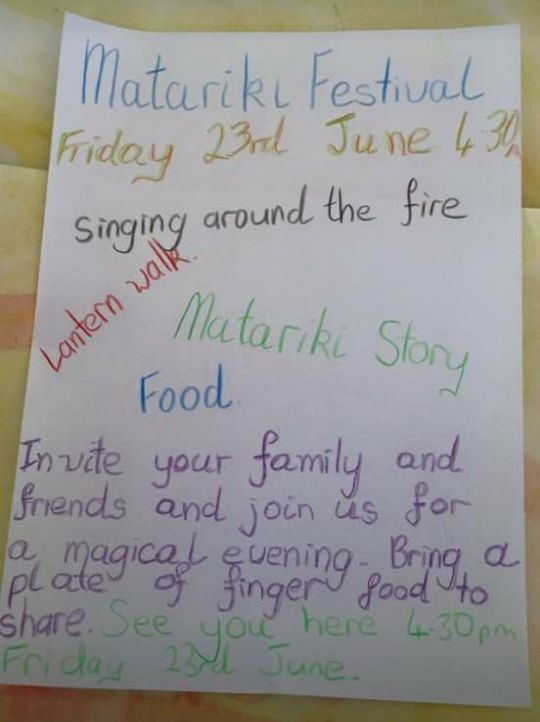 Matariki Festival
Friday 23rd June 4.30
singing around the fire
Lantern walk.
Matariki Story
Food.
Invite your family and
friends and join us for
a magical evening. Bring a
plate of finger food to
share. See you here 4.30pm
Friday 23rd June.